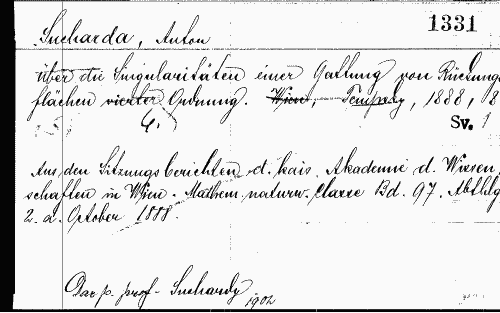 1331
Sucharda, Anton
über die Singularitäten einer Gattung von Rückungs
flächen vierter Ordnung. Wien, Tempsky, 1888, 8
4. Sv. 1
Aus den Sitzungsberichten d. kais. Akademie d. Wissen
schaften in Wien. Mathem. naturw. Classe Bd. 97. Abthlg
2. a. October 1888.
Dar p. prof. Suchardy 1902